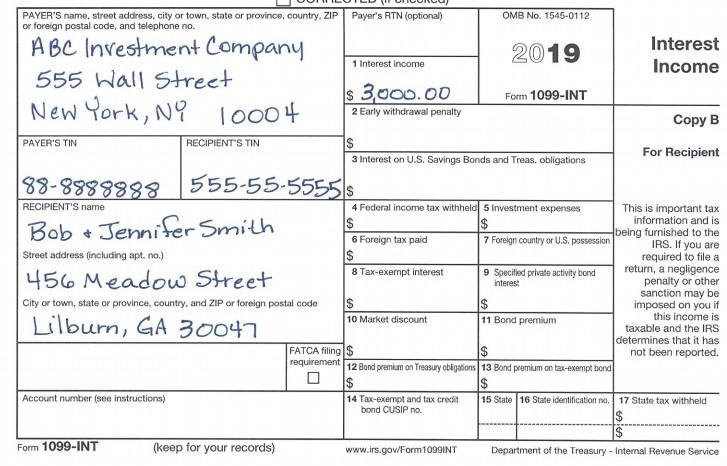 CORRECTED (if checked)
PAYER'S name, street address, city or town, state or province, country, ZIP
or foreign postal code, and telephone no.
ABC Investment Company
555 Wall Street
New York, NY 10004
Payer's RTN (optional)
OMB No. 1545-0112
2019
Form 1099-INT
Interest
Income
1 Interest income
$ 3,000.00
2 Early withdrawal penalty
$
Copy B
For Recipient
PAYER'S TIN
88-8888888
RECIPIENT'S TIN
555-55-5555
3 Interest on U.S. Savings Bonds and Treas. obligations
$
RECIPIENT'S name
Bob + Jennifer Smith
Street address (including apt. no.)
456 Meadow Street
City or town, state or province, country, and ZIP or foreign postal code
Lilburn, GA 30047
4 Federal income tax withheld
$
5 Investment expenses
$
6 Foreign tax paid
$
7 Foreign country or U.S. possession
8 Tax-exempt interest
$
9 Specified private activity bond
interest
$
10 Market discount
$
11 Bond premium
$
This is important tax
information and is
being furnished to the
IRS. If you are
required to file a
return, a negligence
penalty or other
sanction may be
imposed on you if
this income is
taxable and the IRS
determines that it has
not been reported.
FATCA filing
requirement
12 Bond premium on Treasury obligations
$
13 Bond premium on tax-exempt bond
$
Account number (see instructions)
14 Tax-exempt and tax credit
bond CUSIP no.
15 State
16 State identification no.
17 State tax withheld
$
$
Form 1099-INT
(keep for your records)
www.irs.gov/Form1099INT
Department of the Treasury - Internal Revenue Service